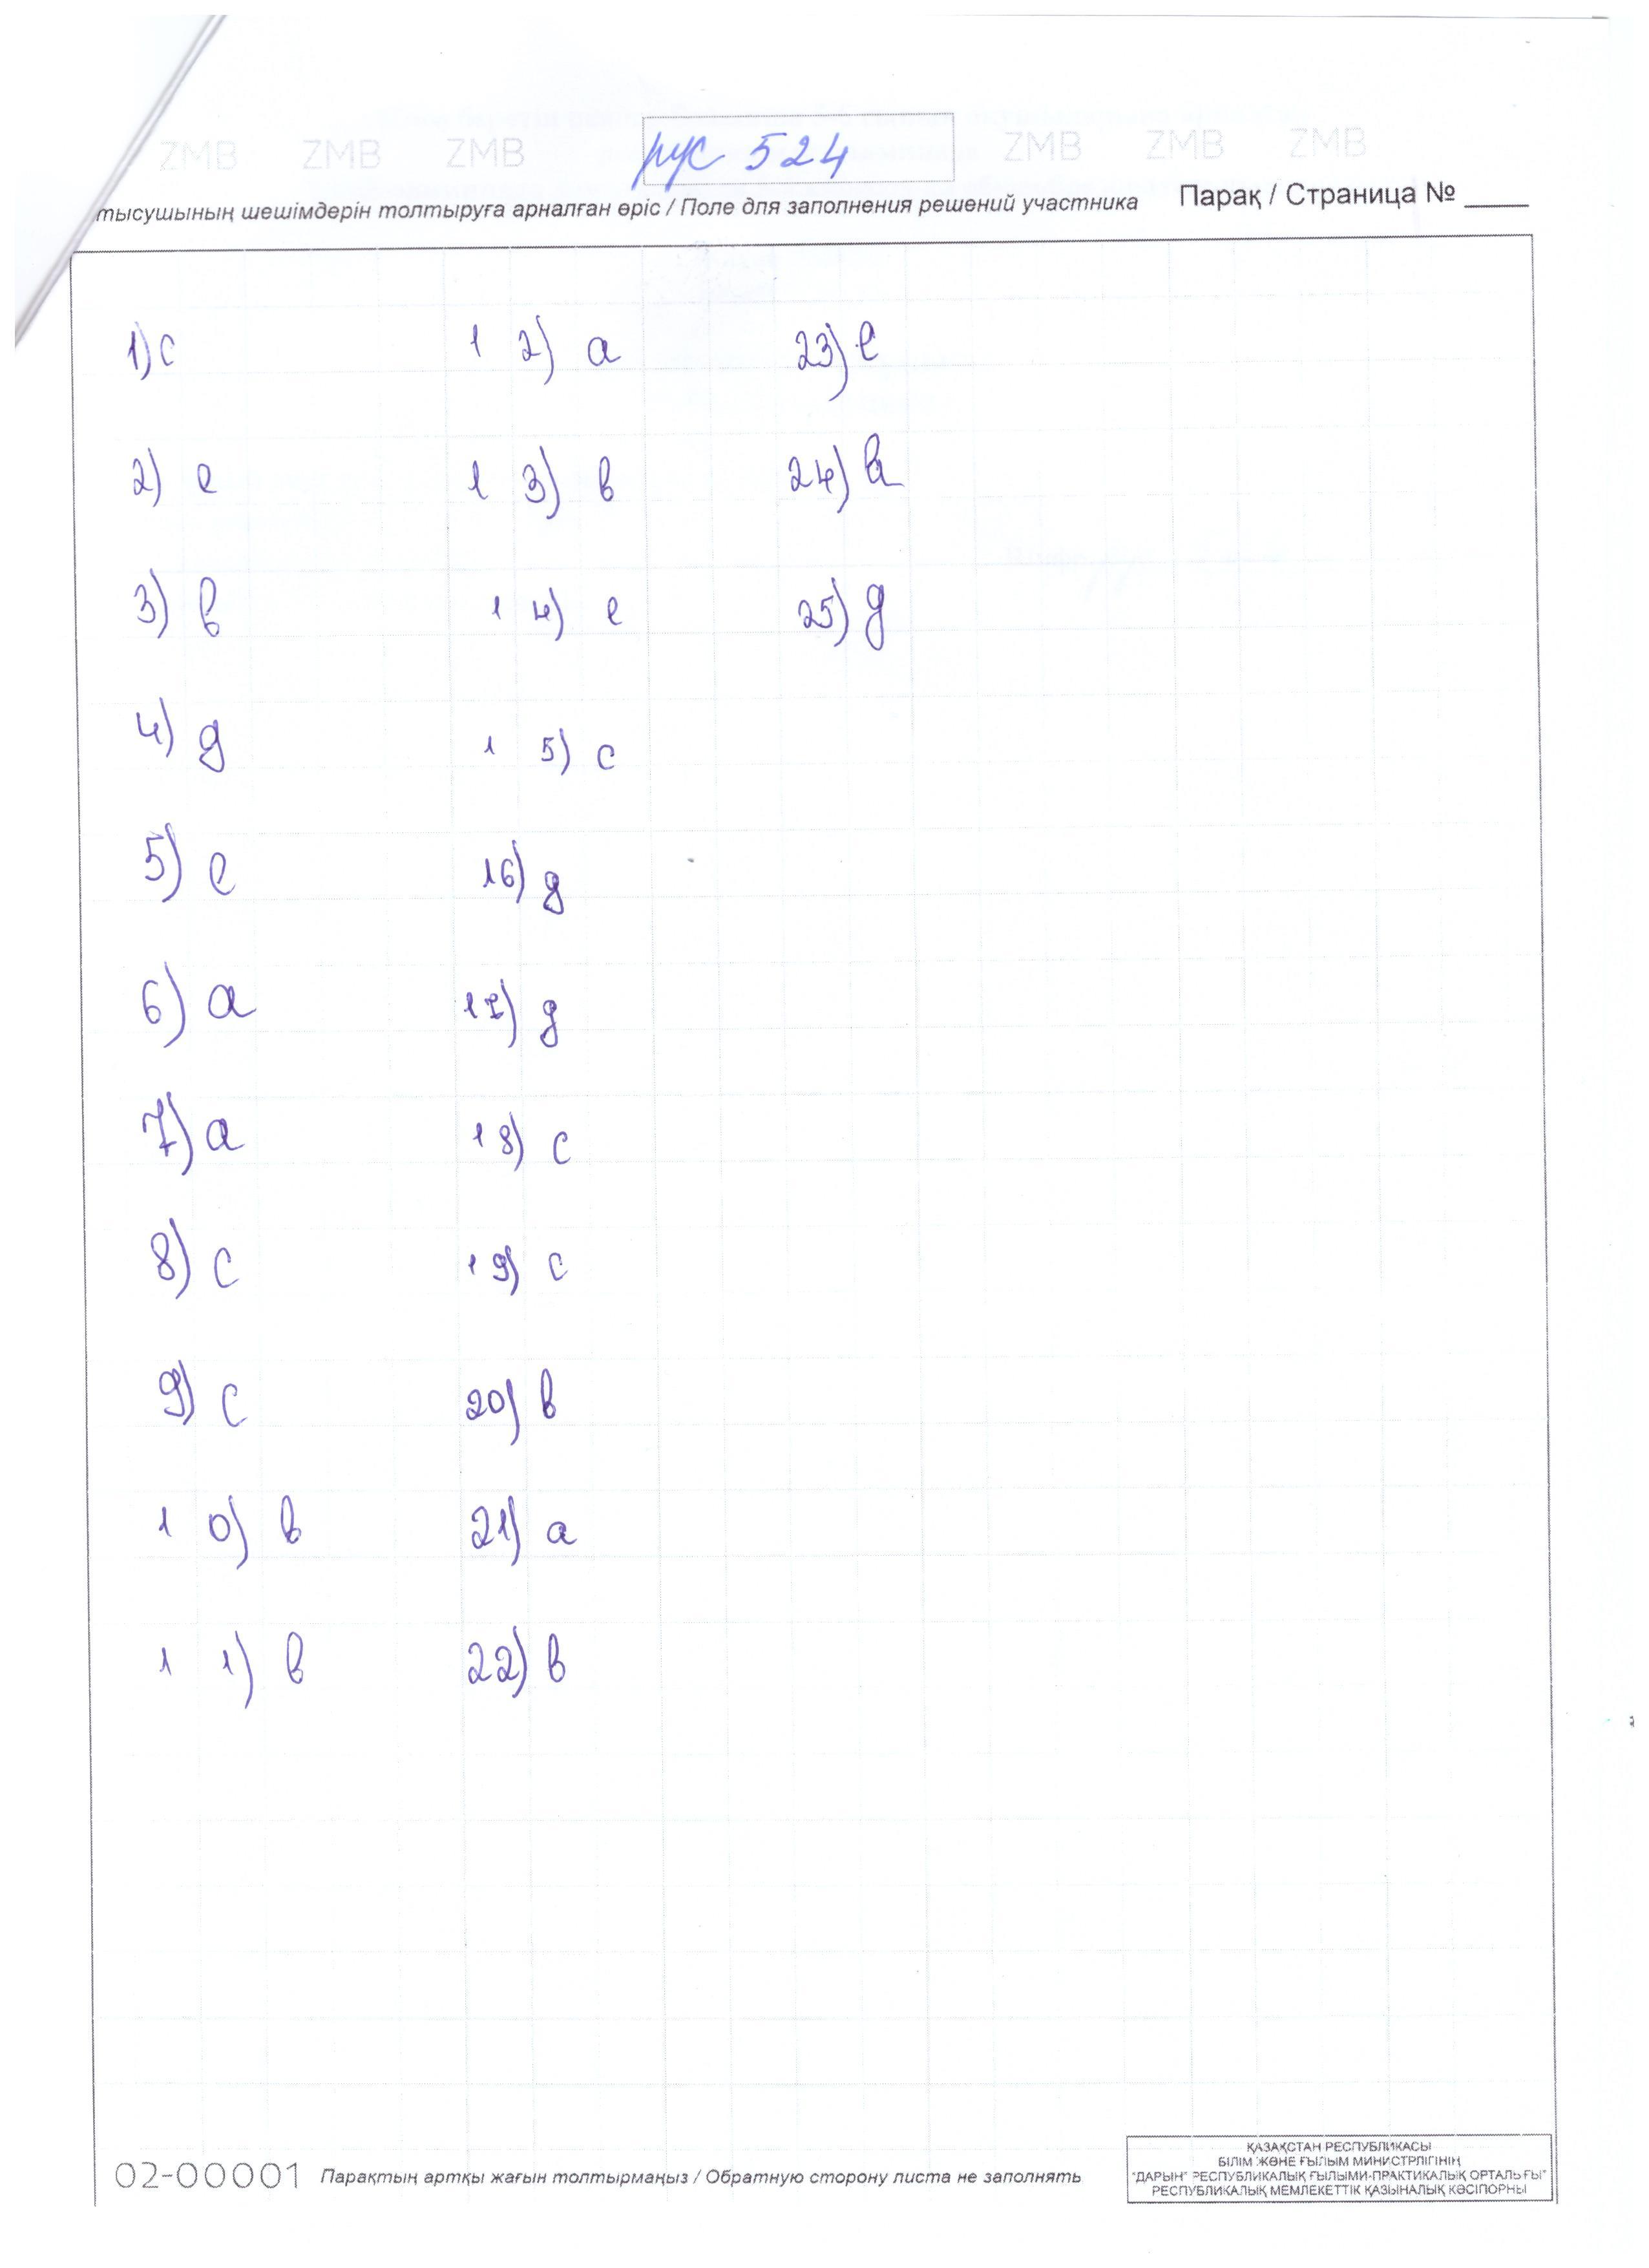 ZMB ZMB ZMB рус 524 ZMB ZMB ZMB
тысушының шешімдерін толтыруға арналған өріс / Поле для заполнения решений участника Парақ / Страница № ____
1) c
2) e
3) в
4) g
5) e
6) a
7) a
8) c
9) c
1 0) в
1 1) в
1 2) a
1 3) в
1 4) e
1 5) c
16) g
17) g
18) c
19) c
20) в
21) a
22) в
23) e
24)
25) g
02-00001 Парақтың артқы жағын толтырмаңыз / Обратную сторону листа не заполнять
ҚАЗАҚСТАН РЕСПУБЛИКАСЫ
БІЛІМ ЖӘНЕ ҒЫЛЫМ МИНИСТРЛІГІНІҢ
"ДАРЫН" РЕСПУБЛИКАЛЫҚ ҒЫЛЫМИ-ПРАКТИКАЛЫҚ ОРТАЛЫҒЫ"
РЕСПУБЛИКАЛЫҚ МЕМЛЕКЕТТІК ҚАЗЫНАЛЫҚ КӘСІПОРНЫ